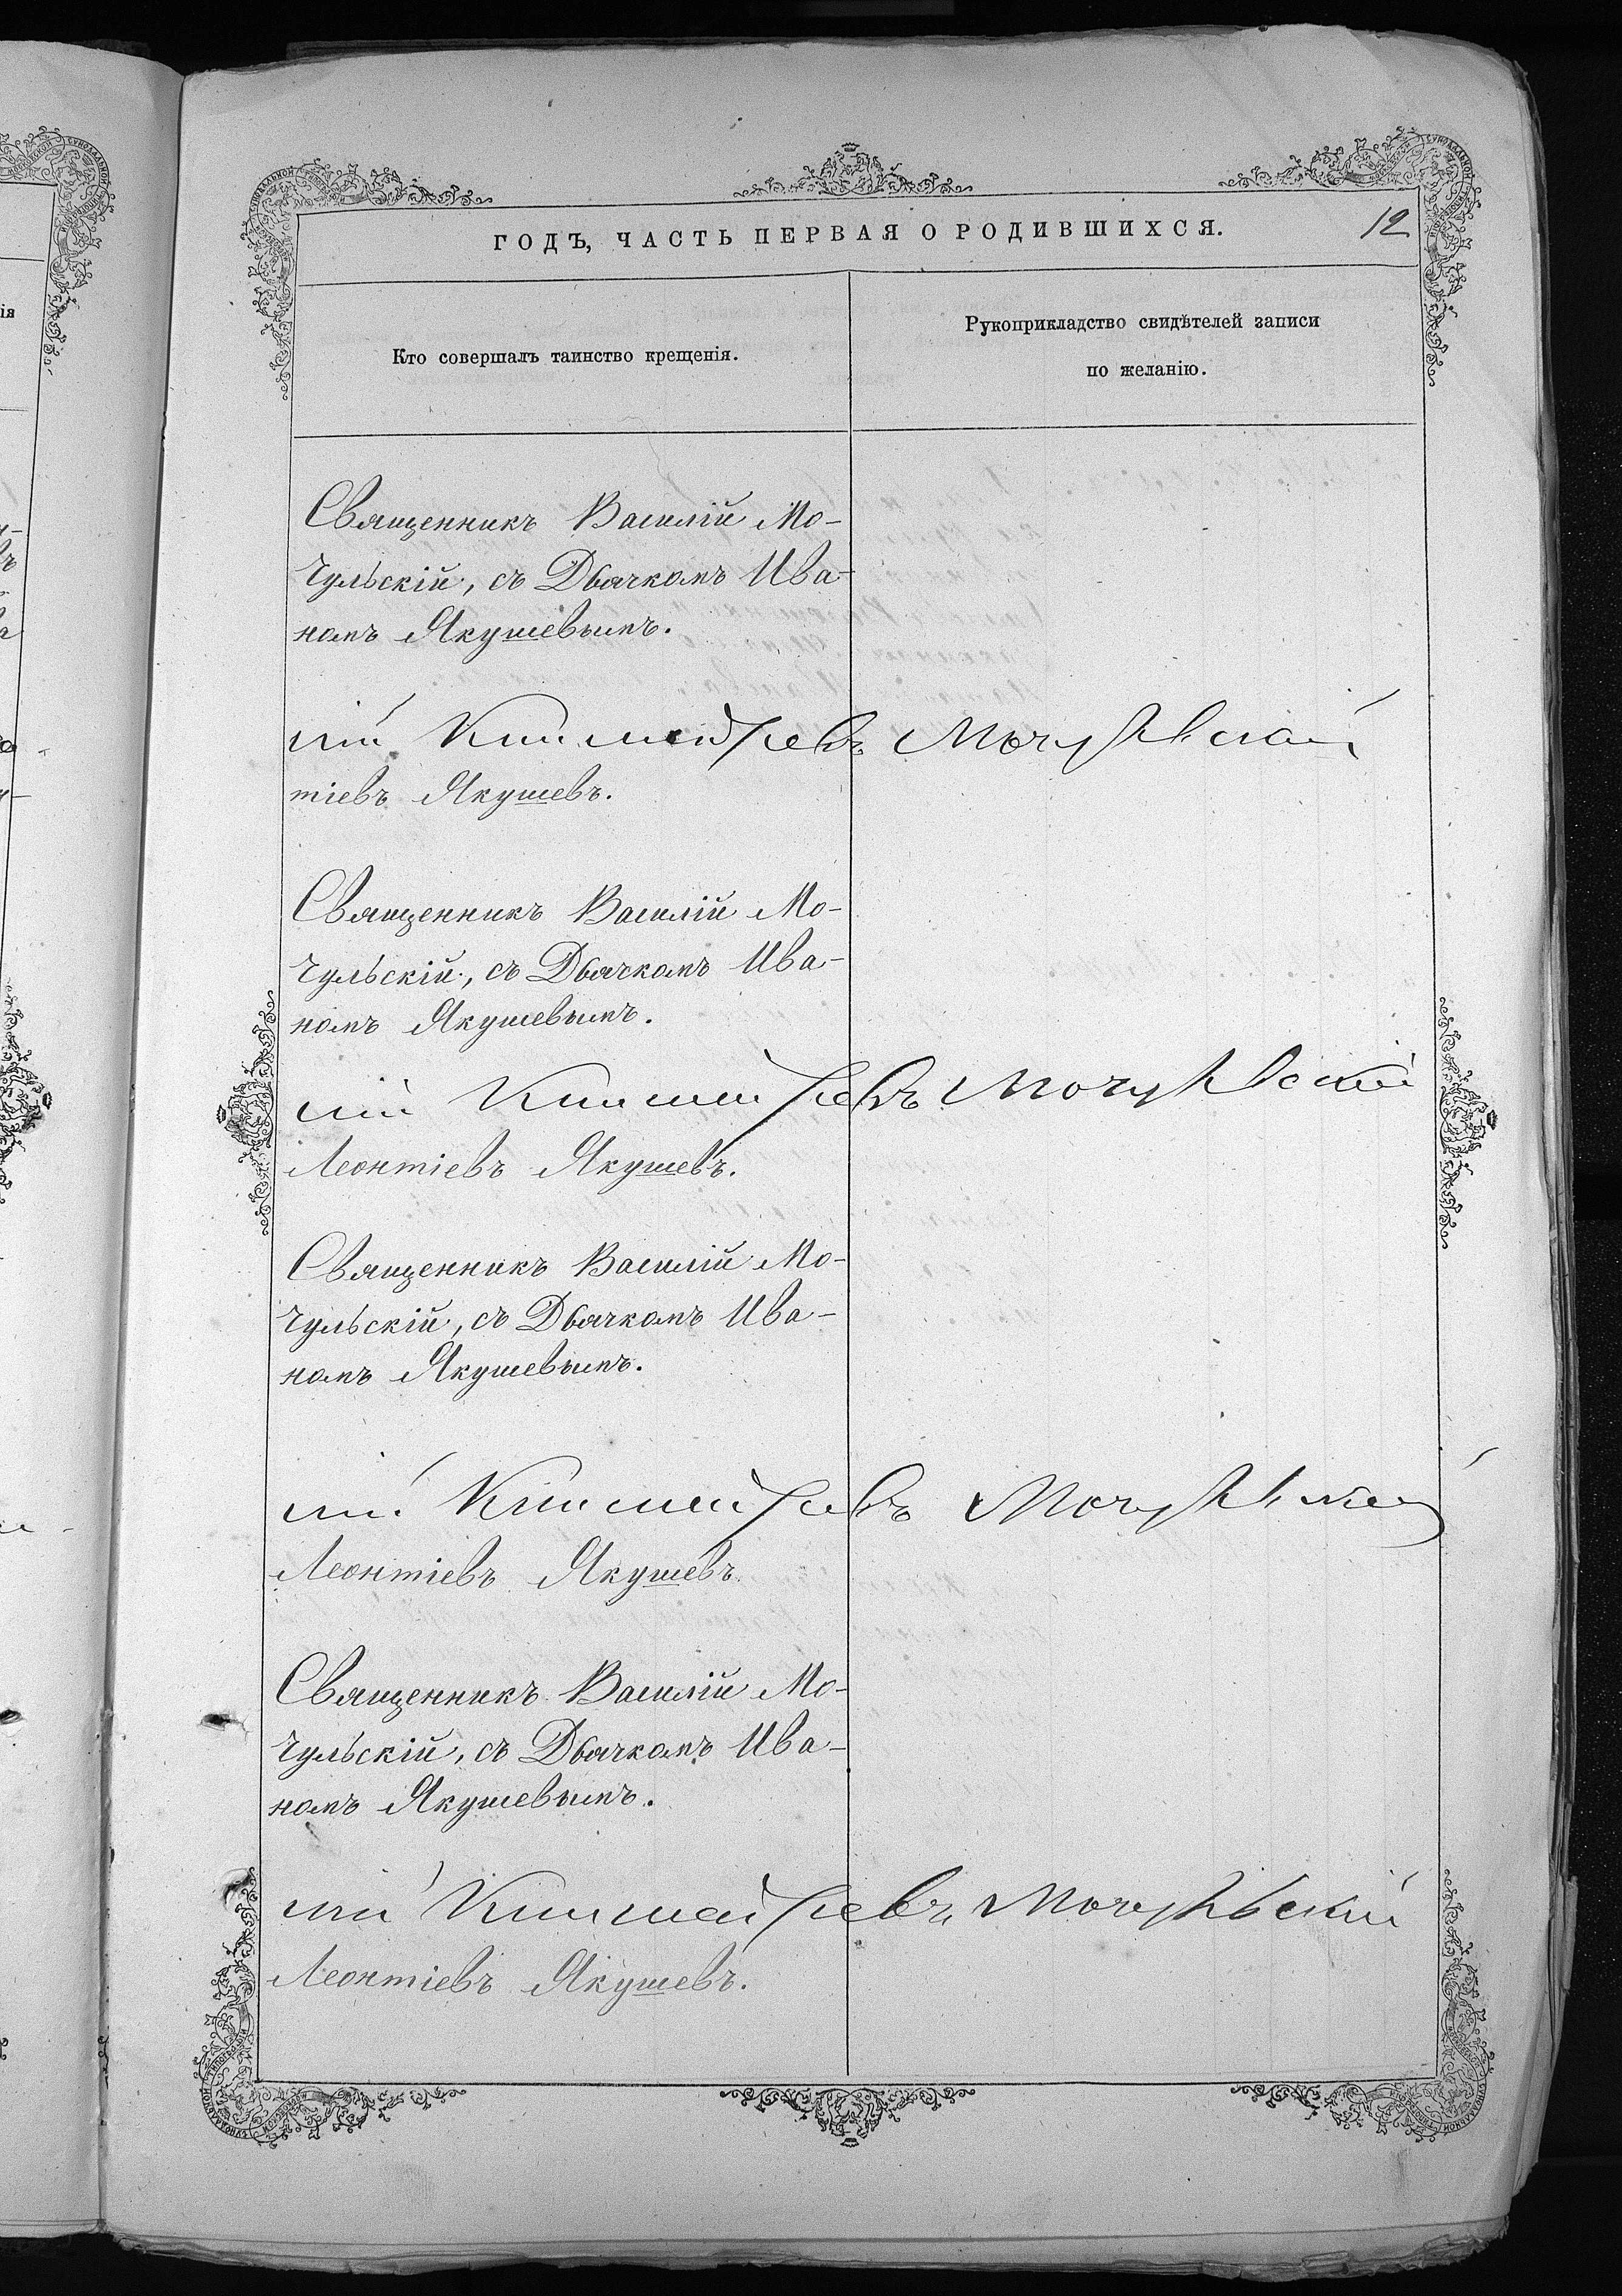 ГОДЪ, ЧАСТЬ ПЕРВАЯ О РОДИВШИХСЯ.
12
Кто совершалъ таинство крещенія.
Рукоприкладство свидѣтелей записи
по желанію.
Священникъ Василій Мо-
чульскій, съ Дьячкомъ Ива-
номъ Якушевымъ.
Мочульскій
тіевъ Якушевъ.
Священникъ Василій Мо-
чульскій, съ Дьячкомъ Ива-
номъ Якушевымъ.
Мочульскій
Леонтіевъ Якушевъ.
Священникъ Василій Мо-
чульскій, съ Дьячкомъ Ива-
номъ Якушевымъ.
Мочульскій
Леонтіевъ Якушевъ.
Священникъ Василій Мо-
чульскій, съ Дьячкомъ Ива-
номъ Якушевымъ.
Мочульскій
Леонтіевъ Якушевъ.